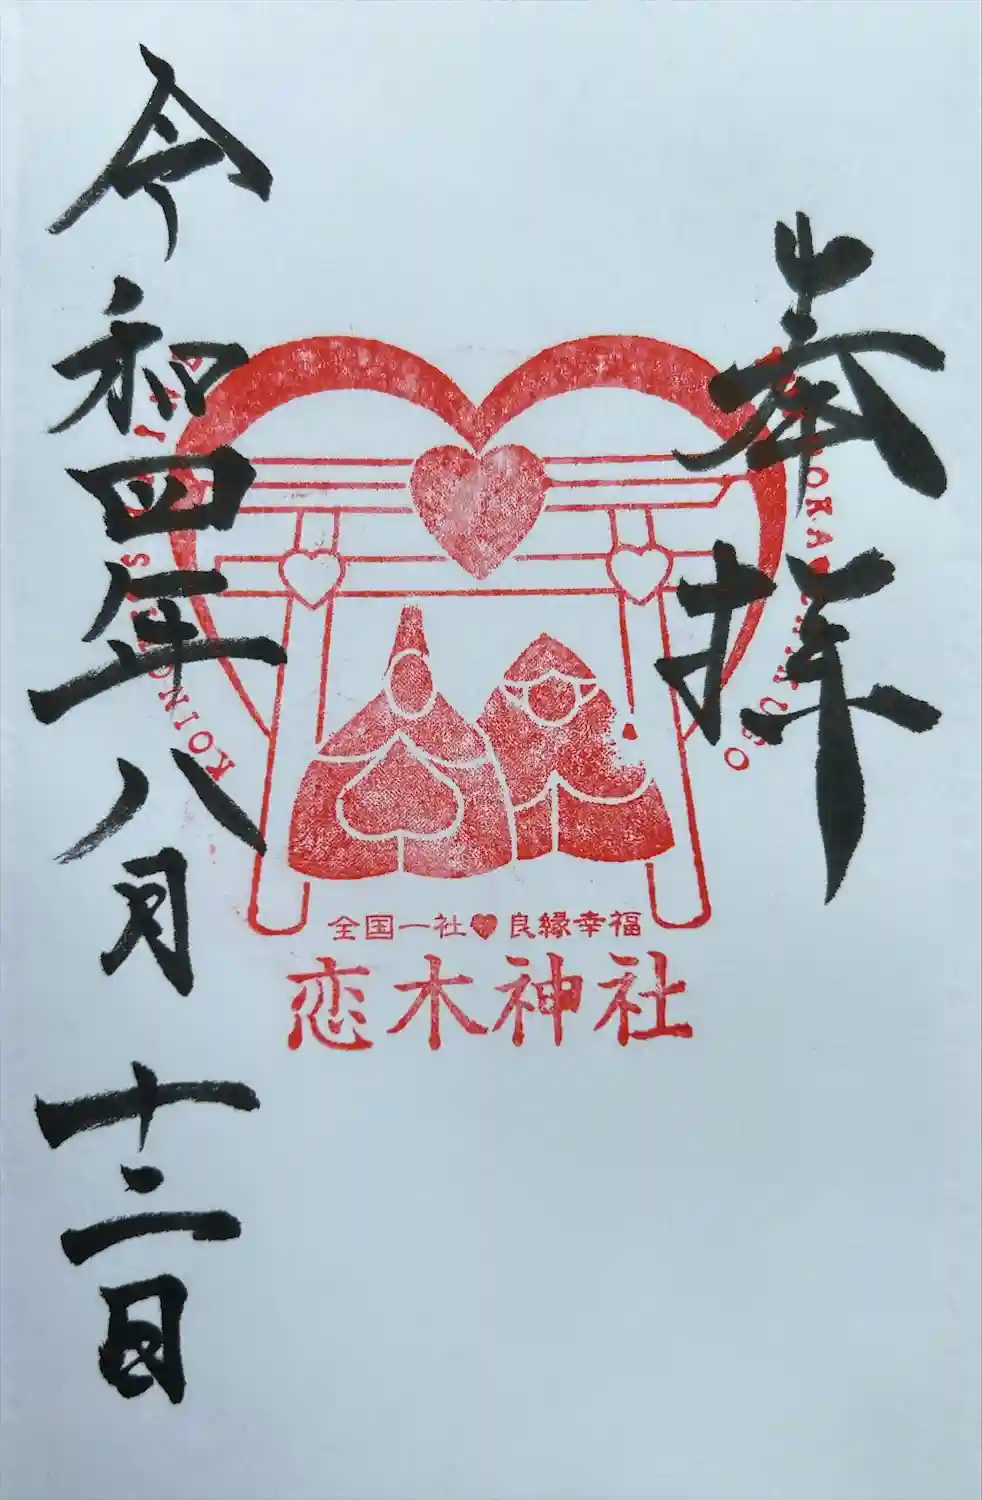 奉拝
全国一社♥良縁幸福
恋木神社
令和四年八月十二日